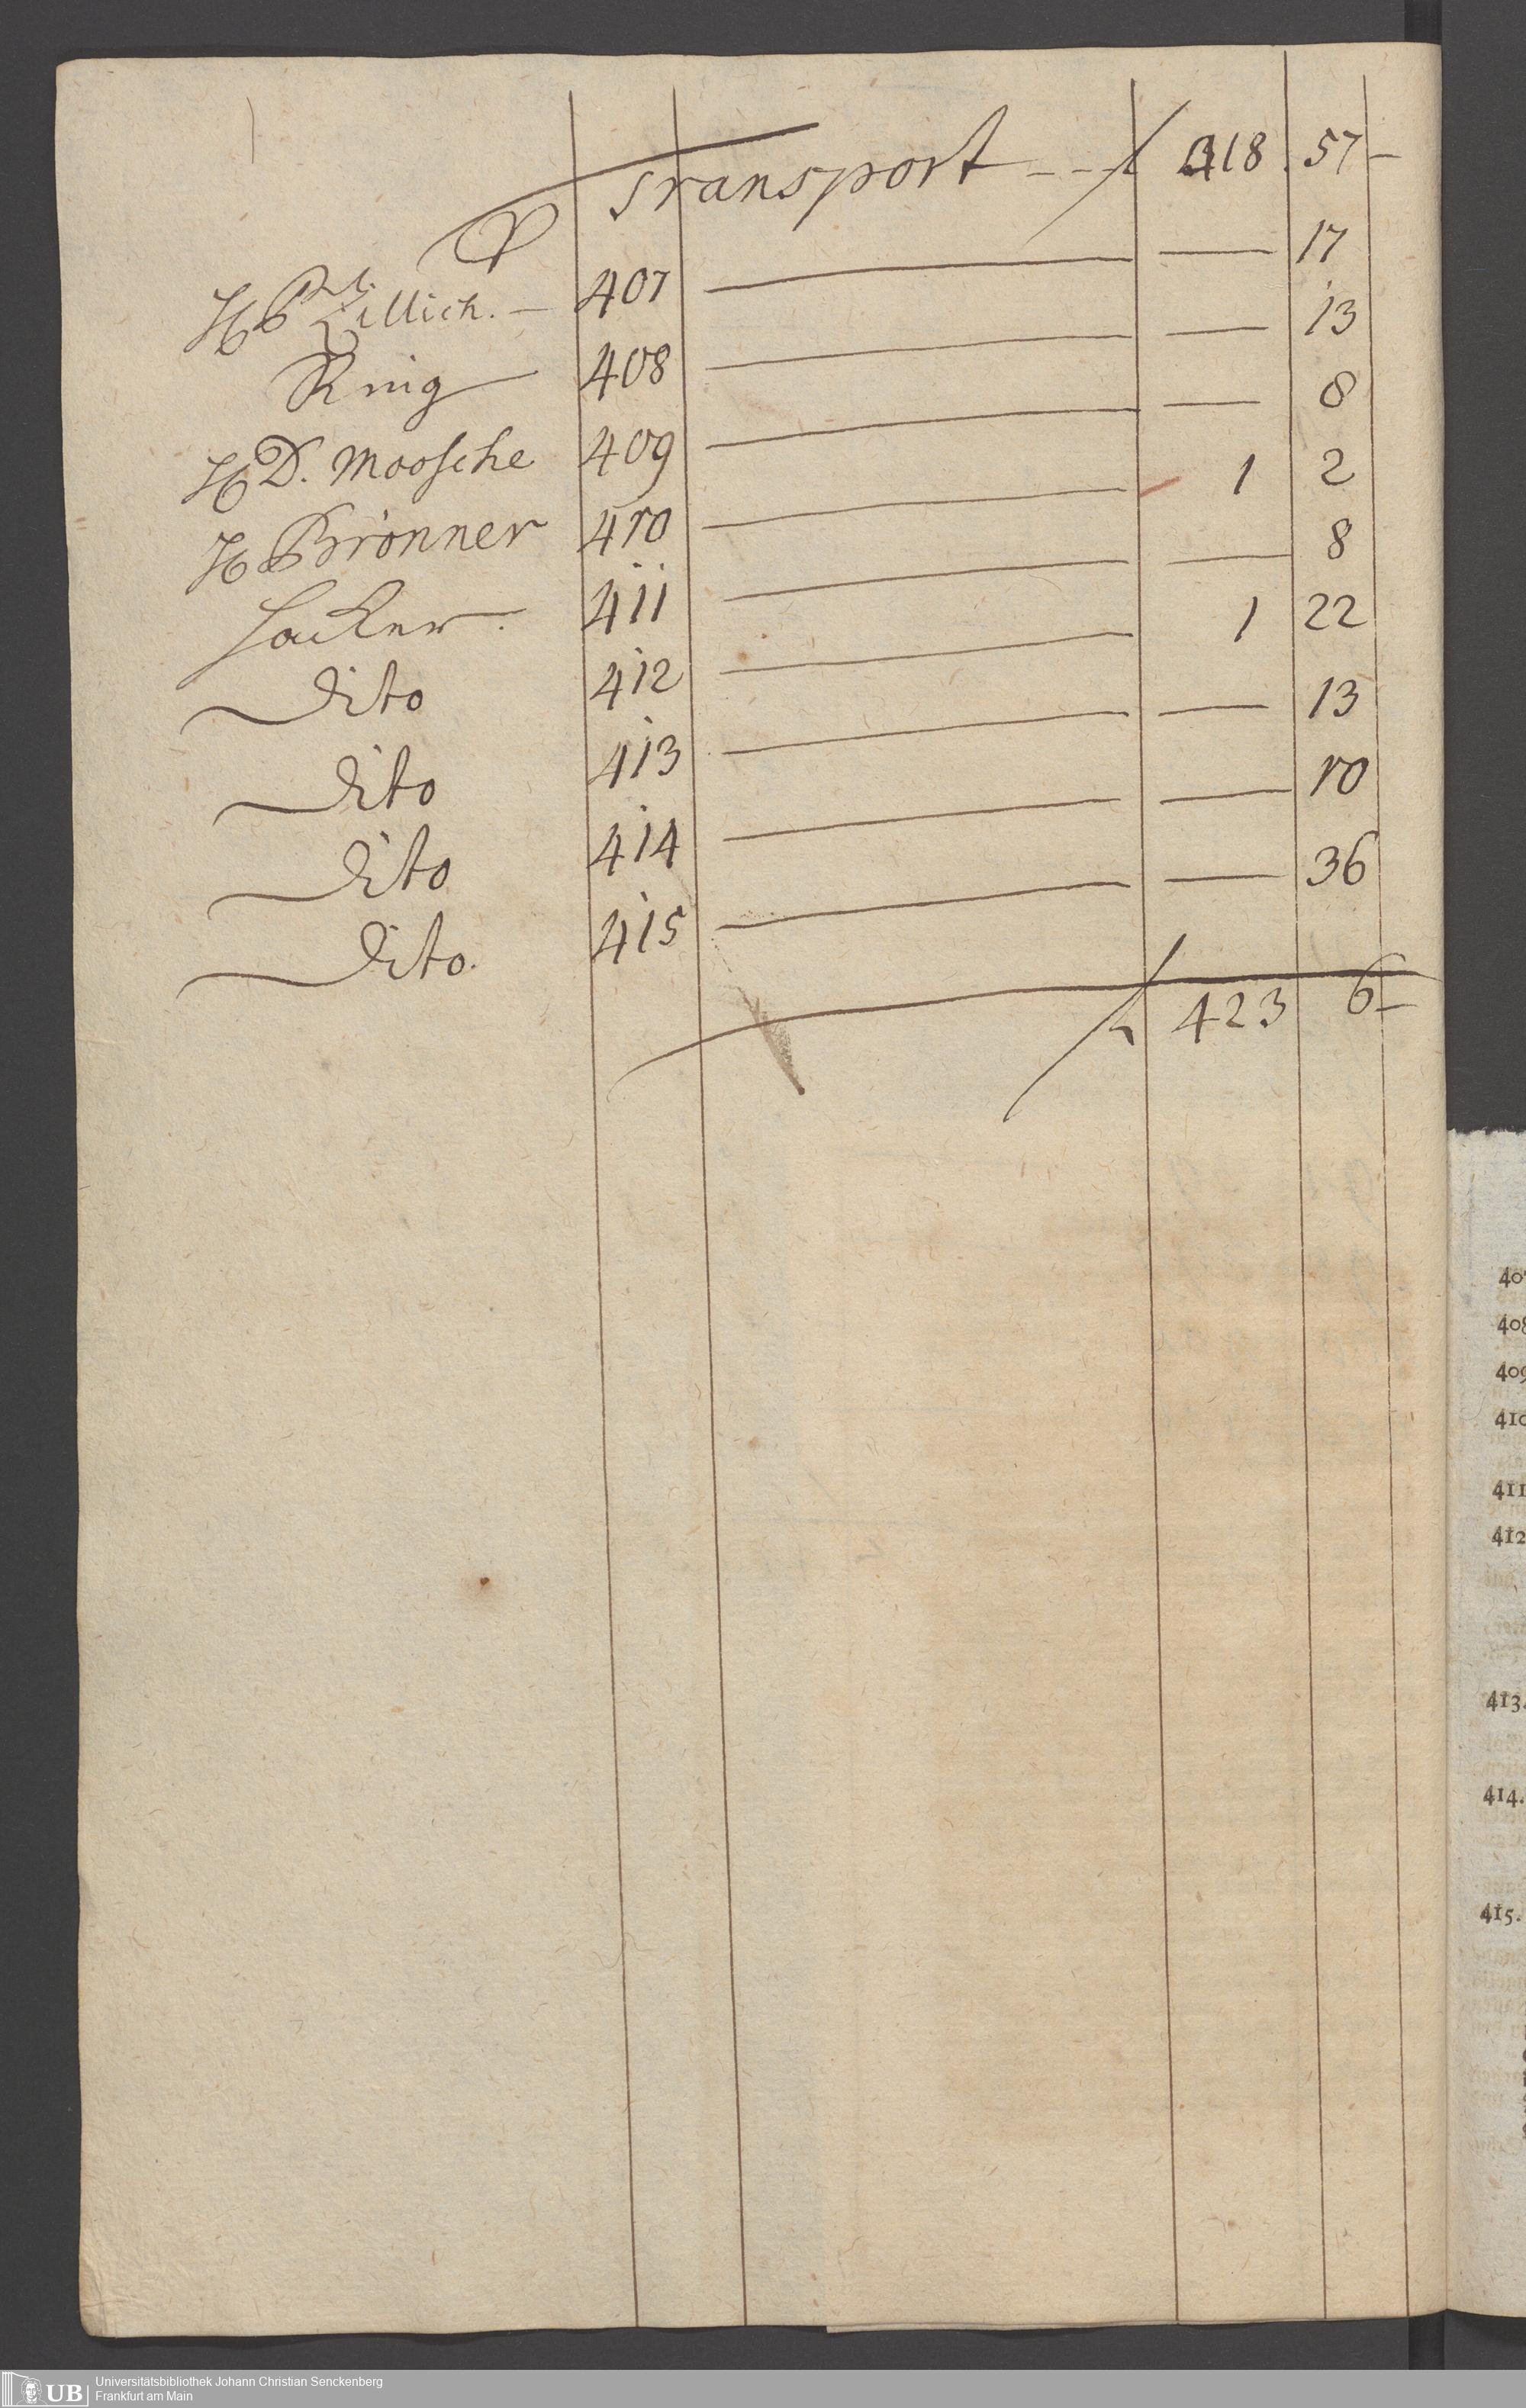 Transport - - - f 418. 57 -
H Pf Zillich. - 407 — — 17
König 408 — — 13
H D. Moosche 409 — — 8
H Brönner 410 — 1 2
Hacker. 411 — — 8
Dito 412 — 1 22
Dito 413 — — 13
Dito 414 — — 10
Dito. 415 — — 36
f 423 6 -
407
408
409
410
411
412
413.
414.
415.
UB Universitätsbibliothek Johann Christian Senckenberg
Frankfurt am Main